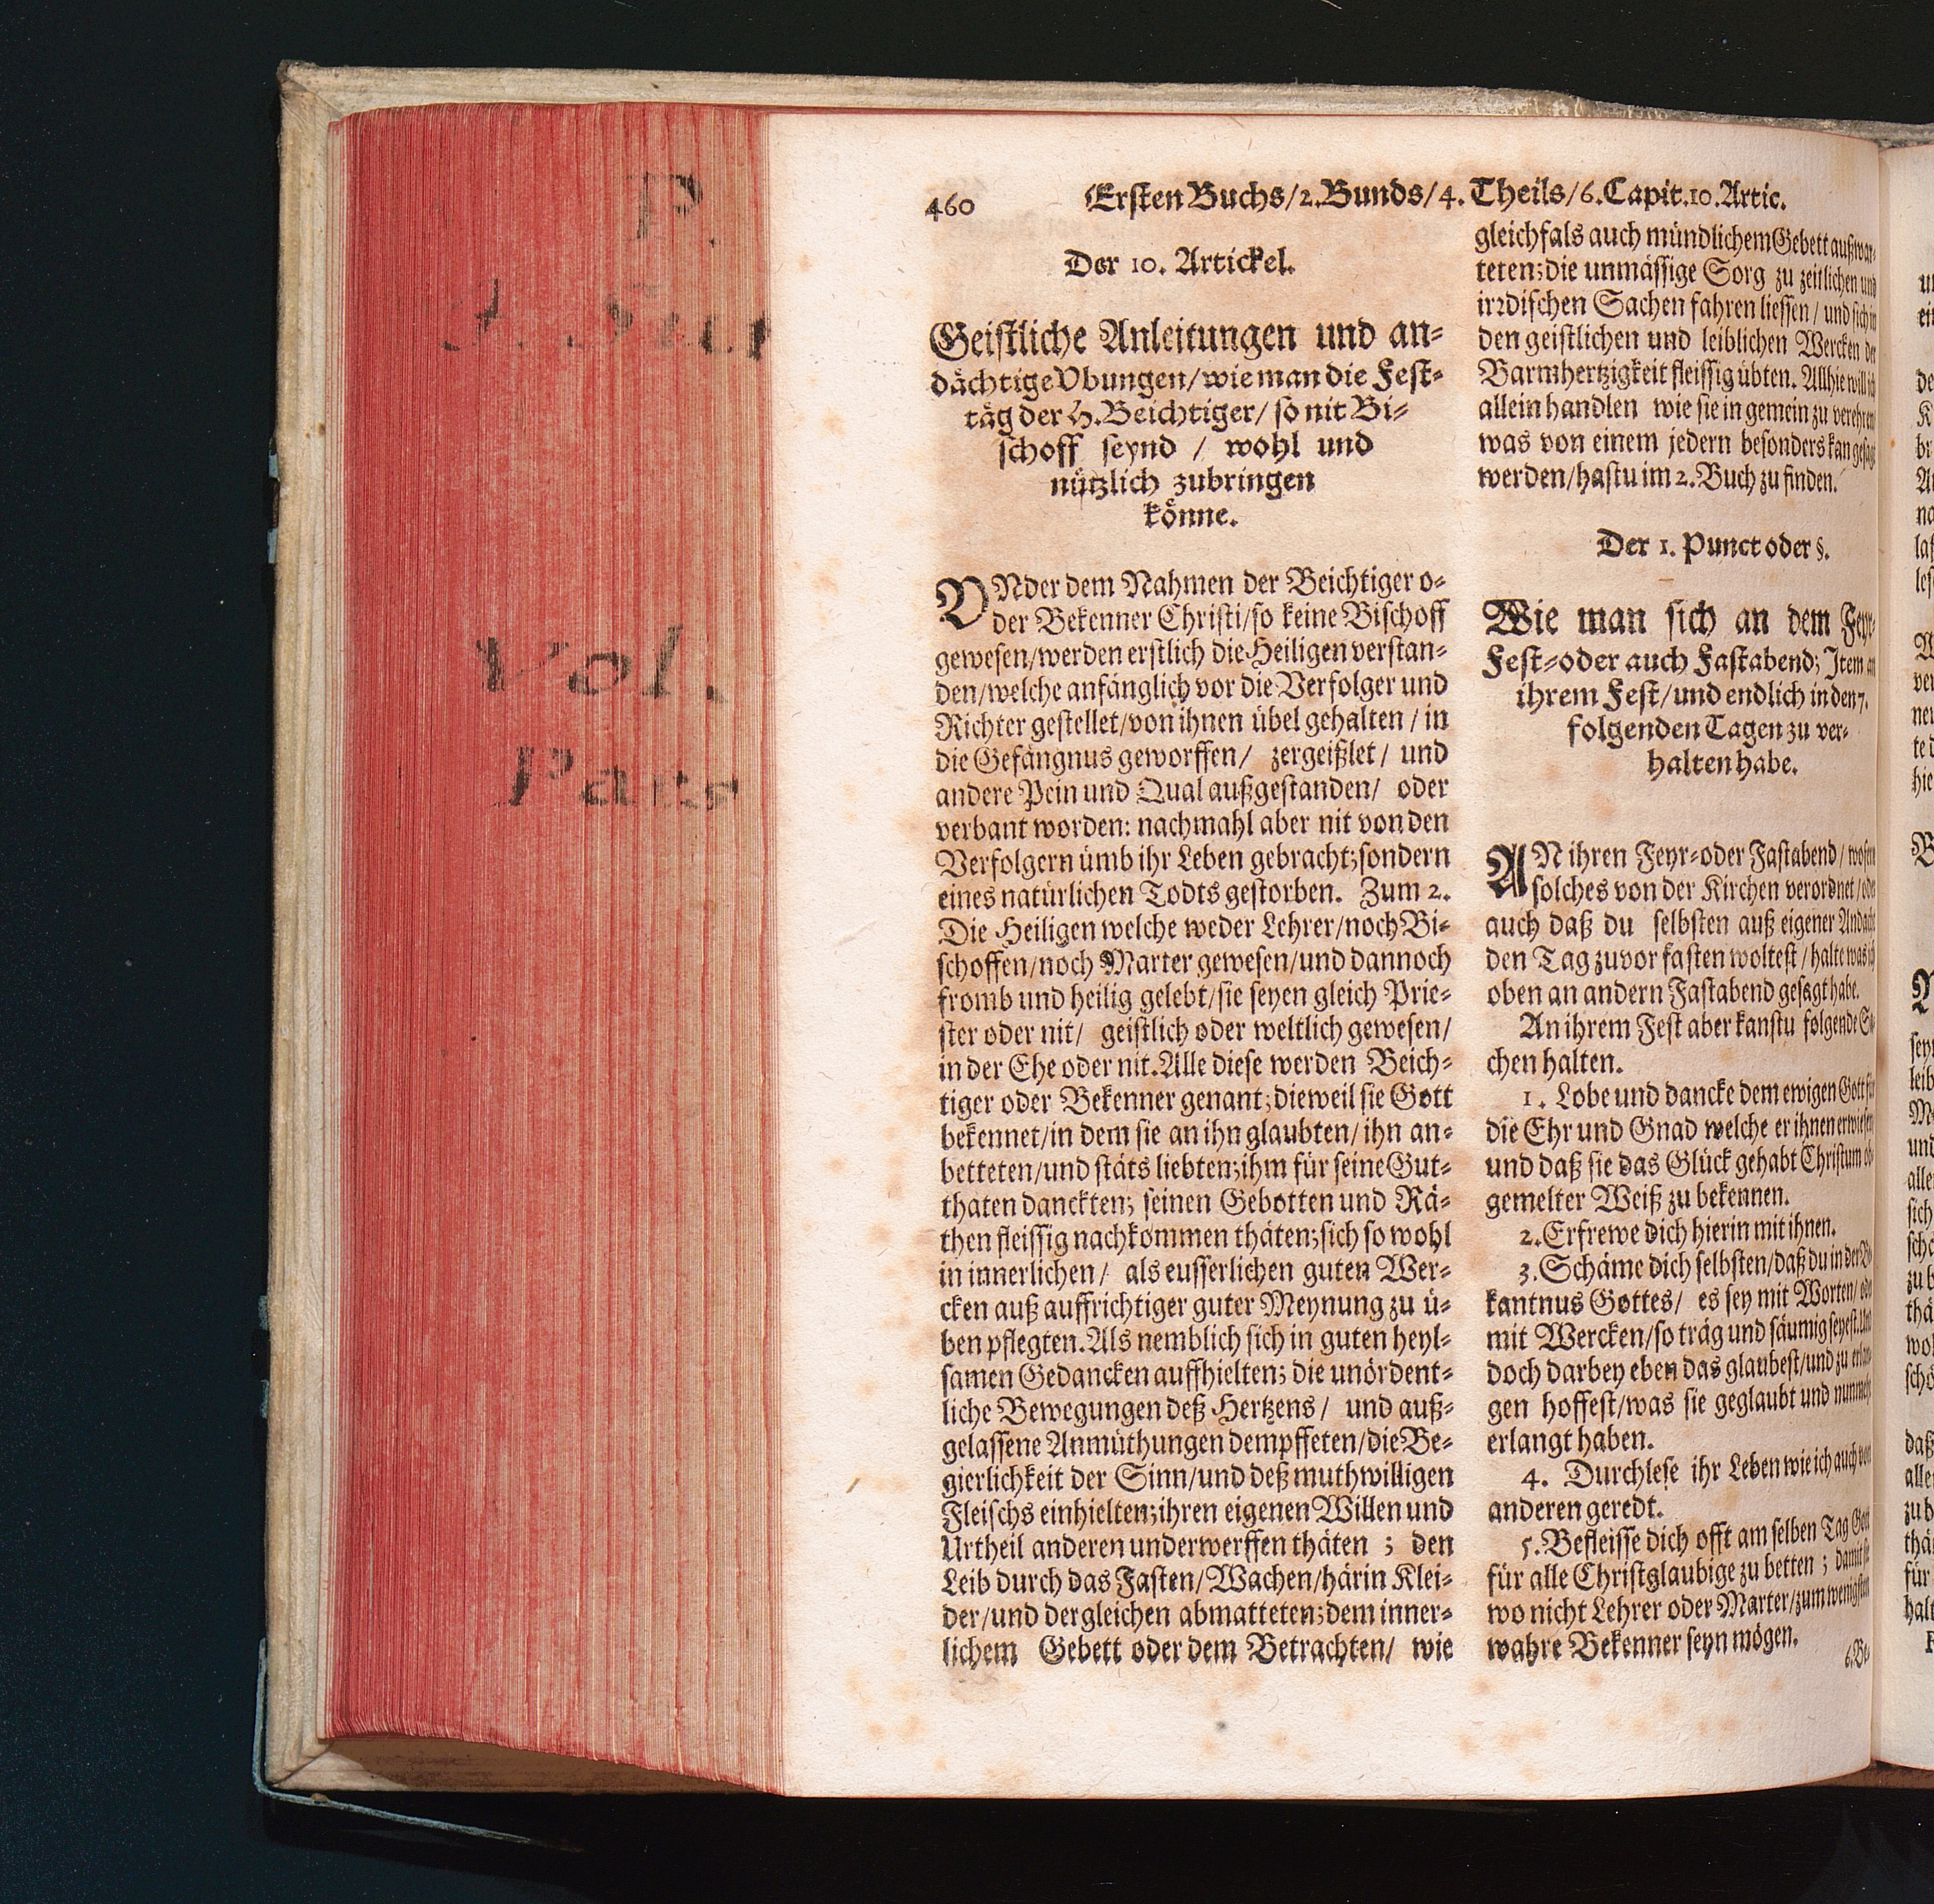 460 Ersten Buchs/2.Bunds/4.Theils/6.Capit.10.Artic.
Der 10. Artickel.
Geistliche Anleitungen und an-
dächtige Vbungen/wie man die Fest-
täg der H.Beichtiger/ so nit Bi-
schoff seynd / wohl und
nützlich zubringen
könne.
VNder dem Nahmen der Beichtiger o-
der Bekenner Christi/so keine Bischoff
gewesen/werden erstlich die Heiligen verstan-
den/welche anfänglich vor die Verfolger und
Richter gestellet/von ihnen übel gehalten / in
die Gefängnus geworffen/ zergeißlet/ und
andere Pein und Qual außgestanden/ oder
verbant worden: nachmahl aber nit von den
Verfolgern ümb ihr Leben gebracht; sondern
eines natürlichen Todts gestorben. Zum 2.
Die Heiligen welche weder Lehrer/noch Bi-
schoffen/noch Marter gewesen/und dannoch
fromb und heilig gelebt/sie seyen gleich Prie-
ster oder nit/ geistlich oder weltlich gewesen/
in der Ehe oder nit. Alle diese werden Beich-
tiger oder Bekenner genant; dieweil sie Gott
bekennet/in dem sie an ihn glaubten/ ihn an-
betteten/und stäts liebten; ihm für seine Gut-
thaten danckten; seinen Gebotten und Rä-
then fleissig nachkommen thäten; sich so wohl
in innerlichen/ als eusserlichen guten Wer-
cken auß auffrichtiger guter Meynung zu ü-
ben pflegten. Als nemblich sich in guten heyl-
samen Gedancken auffhielten; die unördent-
liche Bewegungen deß Hertzens/ und auß-
gelassene Anmüthungen dempffeten/die Be-
gierlichkeit der Sinn/und deß muthwilligen
Fleischs einhielten; ihren eigenen Willen und
Urtheil anderen underwerffen thäten ; den
Leib durch das Fasten/Wachen/härin Klei-
der/und dergleichen abmatteten; dem inner-
lichem Gebett oder dem Betrachten/ wie
gleichfals auch mündlichem Gebett außwar-
teten; die unmässige Sorg zu zeitlichen und
irrdischen Sachen fahren liessen/ und sich in
den geistlichen und leiblichen Wercken der
Barmhertzigkeit fleissig übten. Allhie will ich
allein handlen wie sie in gemein zu verehren
was von einem jedern besonders kan gesagt
werden/hastu im 2. Buch zu finden.
Der 1. Punct oder §.
Wie man sich an dem Feyr-
Fest-oder auch Fastabend; Item an
ihrem Fest/und endlich in den 7.
folgenden Tagen zu ver-
halten habe.
AN ihren Feyr-oder Fastabend/ wofern
solches von der Kirchen verordnet/oder
auch daß du selbsten auß eigener Andacht
den Tag zuvor fasten woltest/halte was ich
oben an andern Fastabend gesagt habe.
An ihrem Fest aber kanstu folgende Sa-
chen halten.
1. Lobe und dancke dem ewigen Gott für
die Ehr und Gnad welche er ihnen erwiesen
und daß sie das Glück gehabt Christum ob-
gemelter Weiß zu bekennen.
2. Erfrewe dich hierin mit ihnen.
3. Schäme dich selbsten/daß du in der Be-
kantnus Gottes/ es sey mit Worten/ oder
mit Wercken/so träg und säumig seyest. Und
doch darbey eben das glaubest/und zu erlan-
gen hoffest/was sie geglaubt und nunmehr
erlangt haben.
4. Durchlese ihr Leben wie ich auch von
anderen geredt.
5. Befleisse dich offt am selben Tag Gott
für alle Christglaubige zu betten ; damit sie
wo nicht Lehrer oder Marter/zum wenigsten
wahre Bekenner seyn mögen.
6. Be-
P.
Vol.
Pars